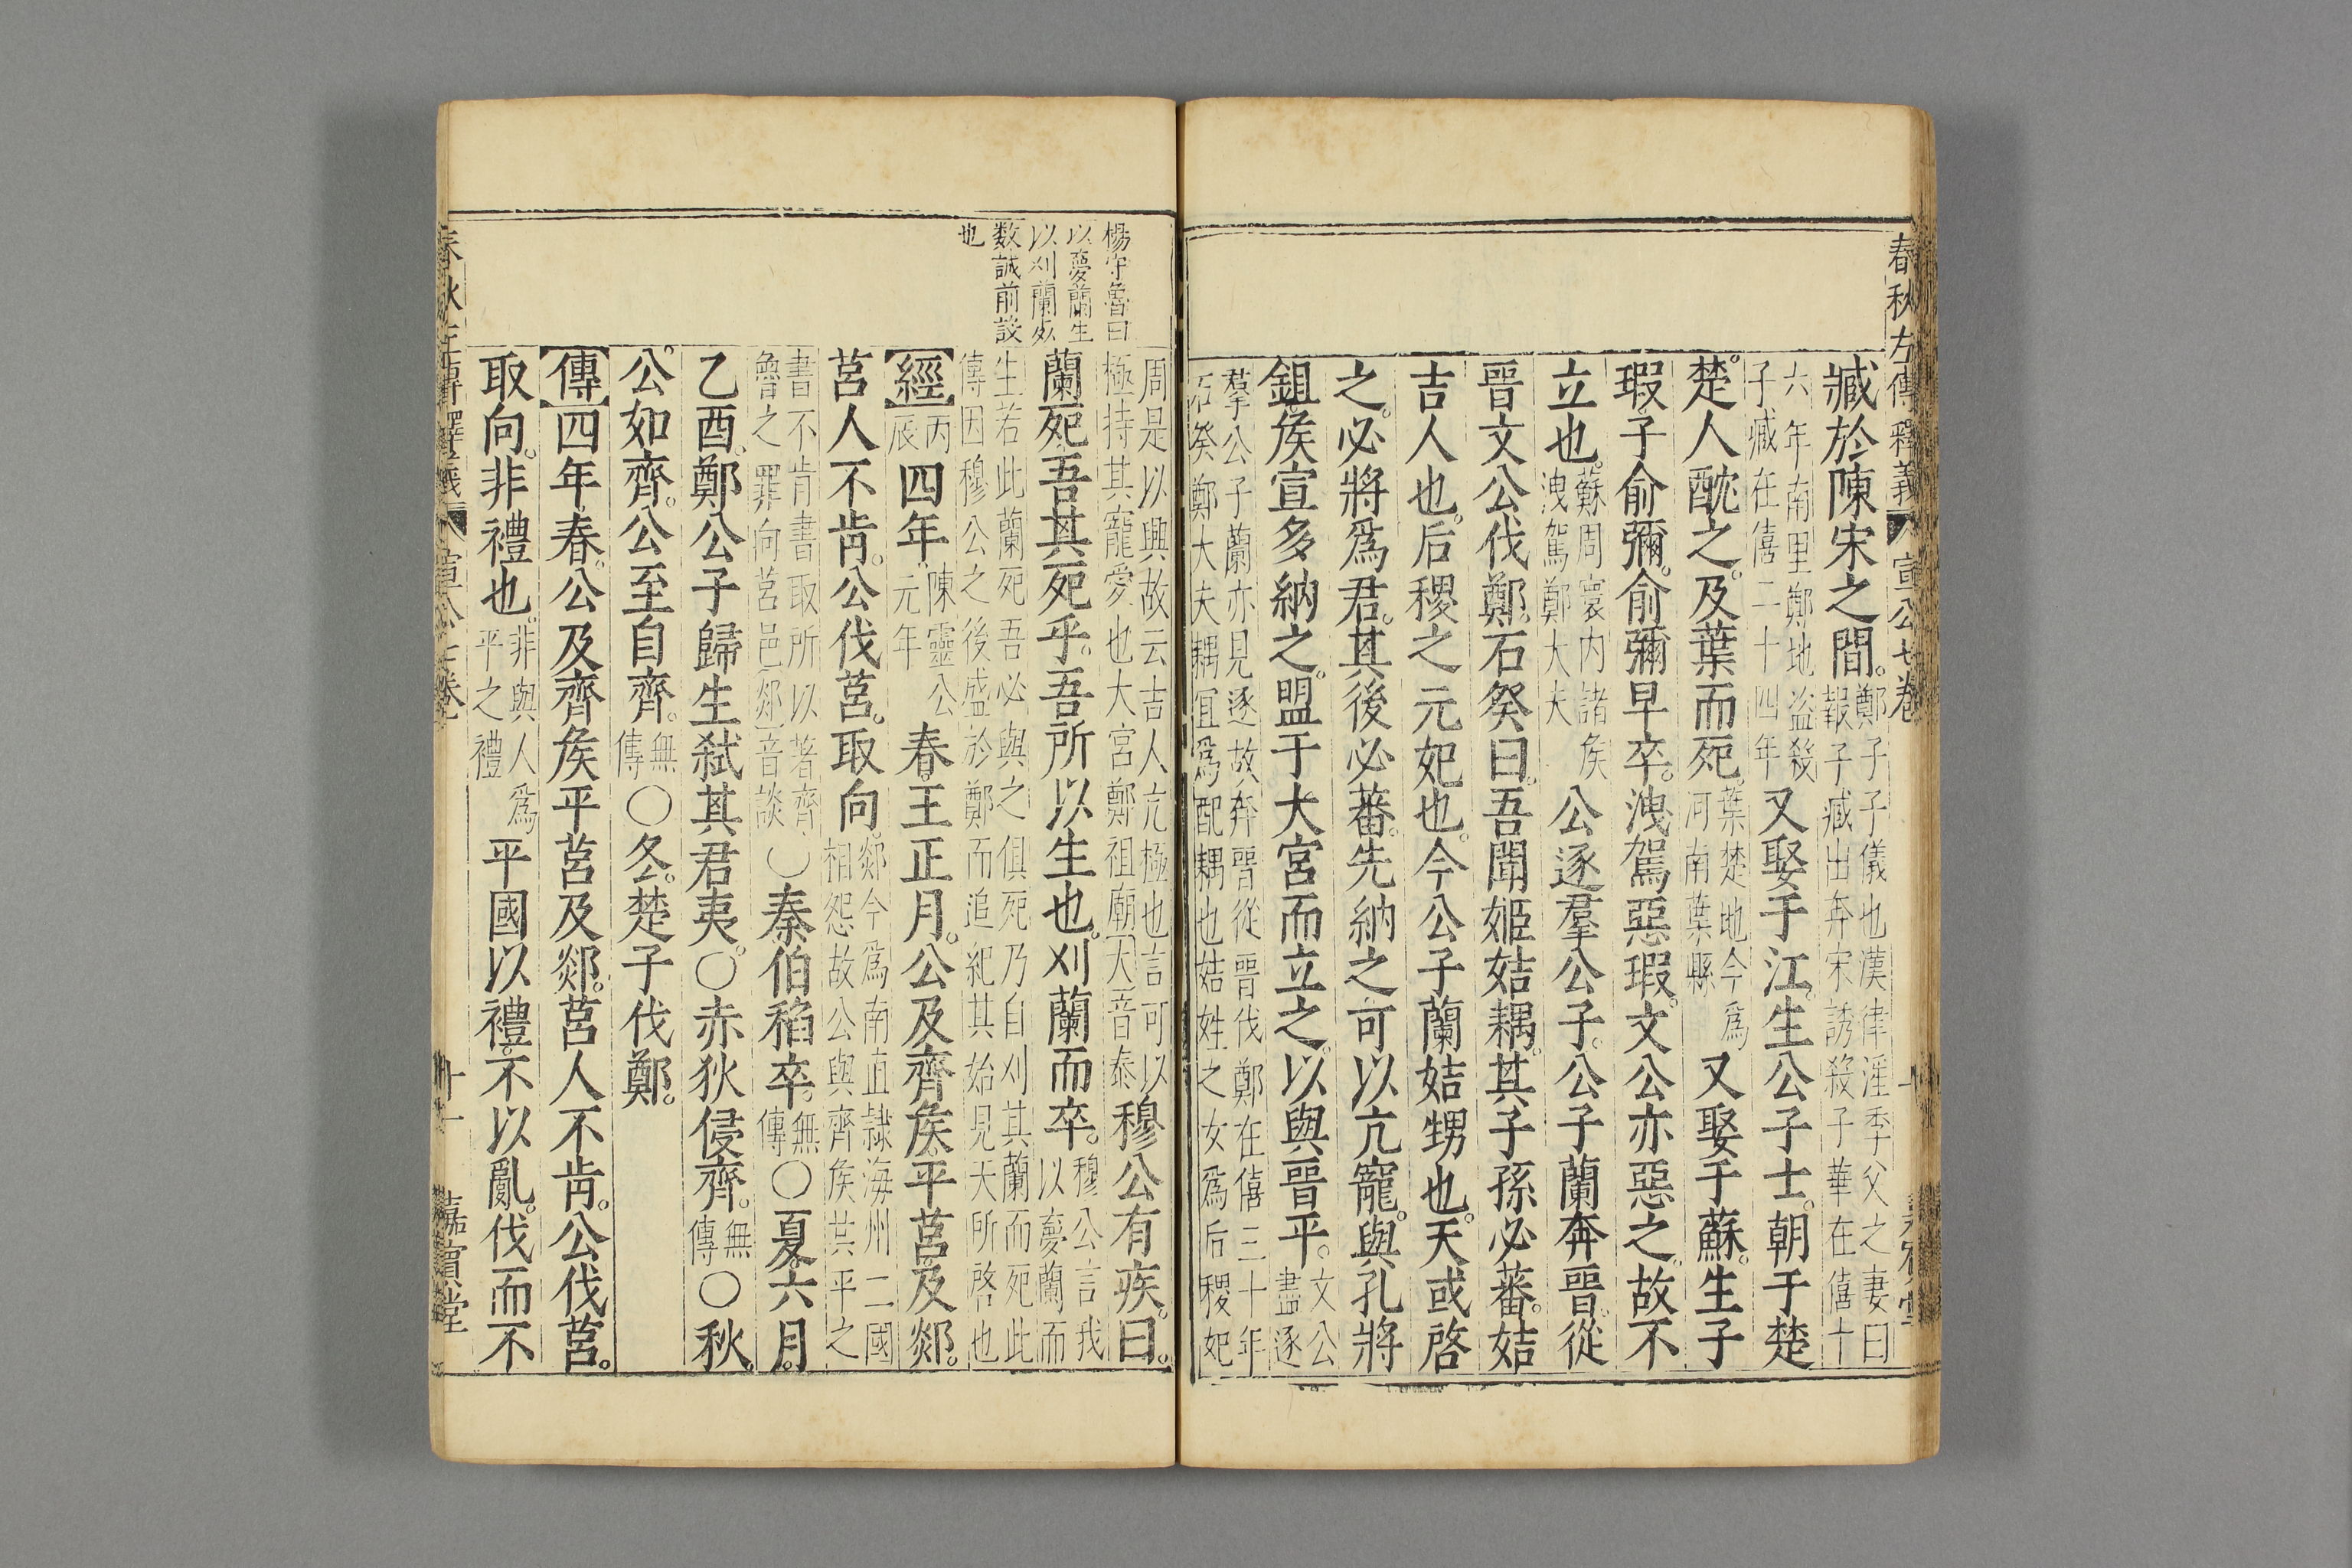 春秋左傳釋義 宣公七卷
臧於陳宋之間鄭子子儀也漢律淫季父之妻曰報子臧出奔宋誘殺子華在僖十
六年南里鄭地盜殺子臧在僖二十四年又娶于江生公子士朝于楚
楚人酖之及葉而死葉楚地今為河南葉縣又娶于蘇生子
瑕子俞彌俞彌早卒洩駕惡瑕文公亦惡之故不
立也蘇周寰內諸矦洩駕鄭大夫公逐羣公子公子蘭奔晉從
晉文公伐鄭石癸曰吾聞姬姞耦其子孫必蕃姞
吉人也后稷之元妃也今公子蘭姞甥也天或啓
之必將爲君其後必蕃先納之可以亢寵與孔將
鉏矦宣多納之盟于大宮而立之以與晉平文公盡逐
羣公子蘭亦見逐故奔晉從晉伐鄭在僖三十年石癸鄭大夫耦宜爲配耦也姞姓之女爲后稷妃
楊守魯曰
以夢蘭生
以刈蘭死
数誠前設
也
周是以興故云吉人亢極也言可以極持其寵愛也大宮鄭祖廟大音泰穆公有疾曰
蘭死吾其死乎吾所以生也刈蘭而卒穆公言我以夢蘭而
生若此蘭死吾必與之俱死乃自刈其蘭而死此傳因穆公之後盛於鄭而追紀其始見天所啓也
經丙辰四年陳靈公元年春王正月公及齊矦平莒及郯
莒人不肯公伐莒取向郯今爲南直隷海州二國相怨故公與齊矦共平之
書不肯書取所以著齊魯之罪向莒邑郯音談○秦伯稻卒無傳○夏六月
乙酉鄭公子歸生弑其君夷○赤狄侵齊無傳○秋
公如齊公至自齊無傳○冬楚子伐鄭
傳四年春公及齊矦平莒及郯莒人不肯公伐莒
取向非禮也非與人爲平之禮平國以禮不以亂伐而不
宣公七卷 十一 嘉賓堂